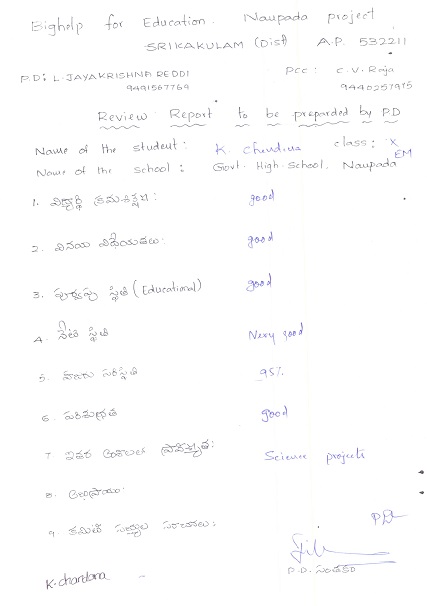 Bighelp for Education. Naupada project
SRIKAKULAM (Dist) A.P. 532211
P.D: L. JAYAKRISHNA REDDI PCC: C.V. Raja
9491567769 9440257975
Review Report to be preparded by PD
Name of the student: K. Chandina class: X EM
Name of the school: Govt. High School, Naupada
1. విద్యార్థి క్రమశిక్షణ: good
2. వినయ విధేయతలు: good
3. స్థితి (Educational) good
4. స్థితి Very good
5. హాజరు 95%
6. పరిశుభ్రత good
7. ఇతర అంశాలలో ప్రావీణ్యత: Science projects
8. అభిప్రాయం:
9. కమిటీ సభ్యుల సంతకాలు:
PD
P.D. సంతకం
K. chandana